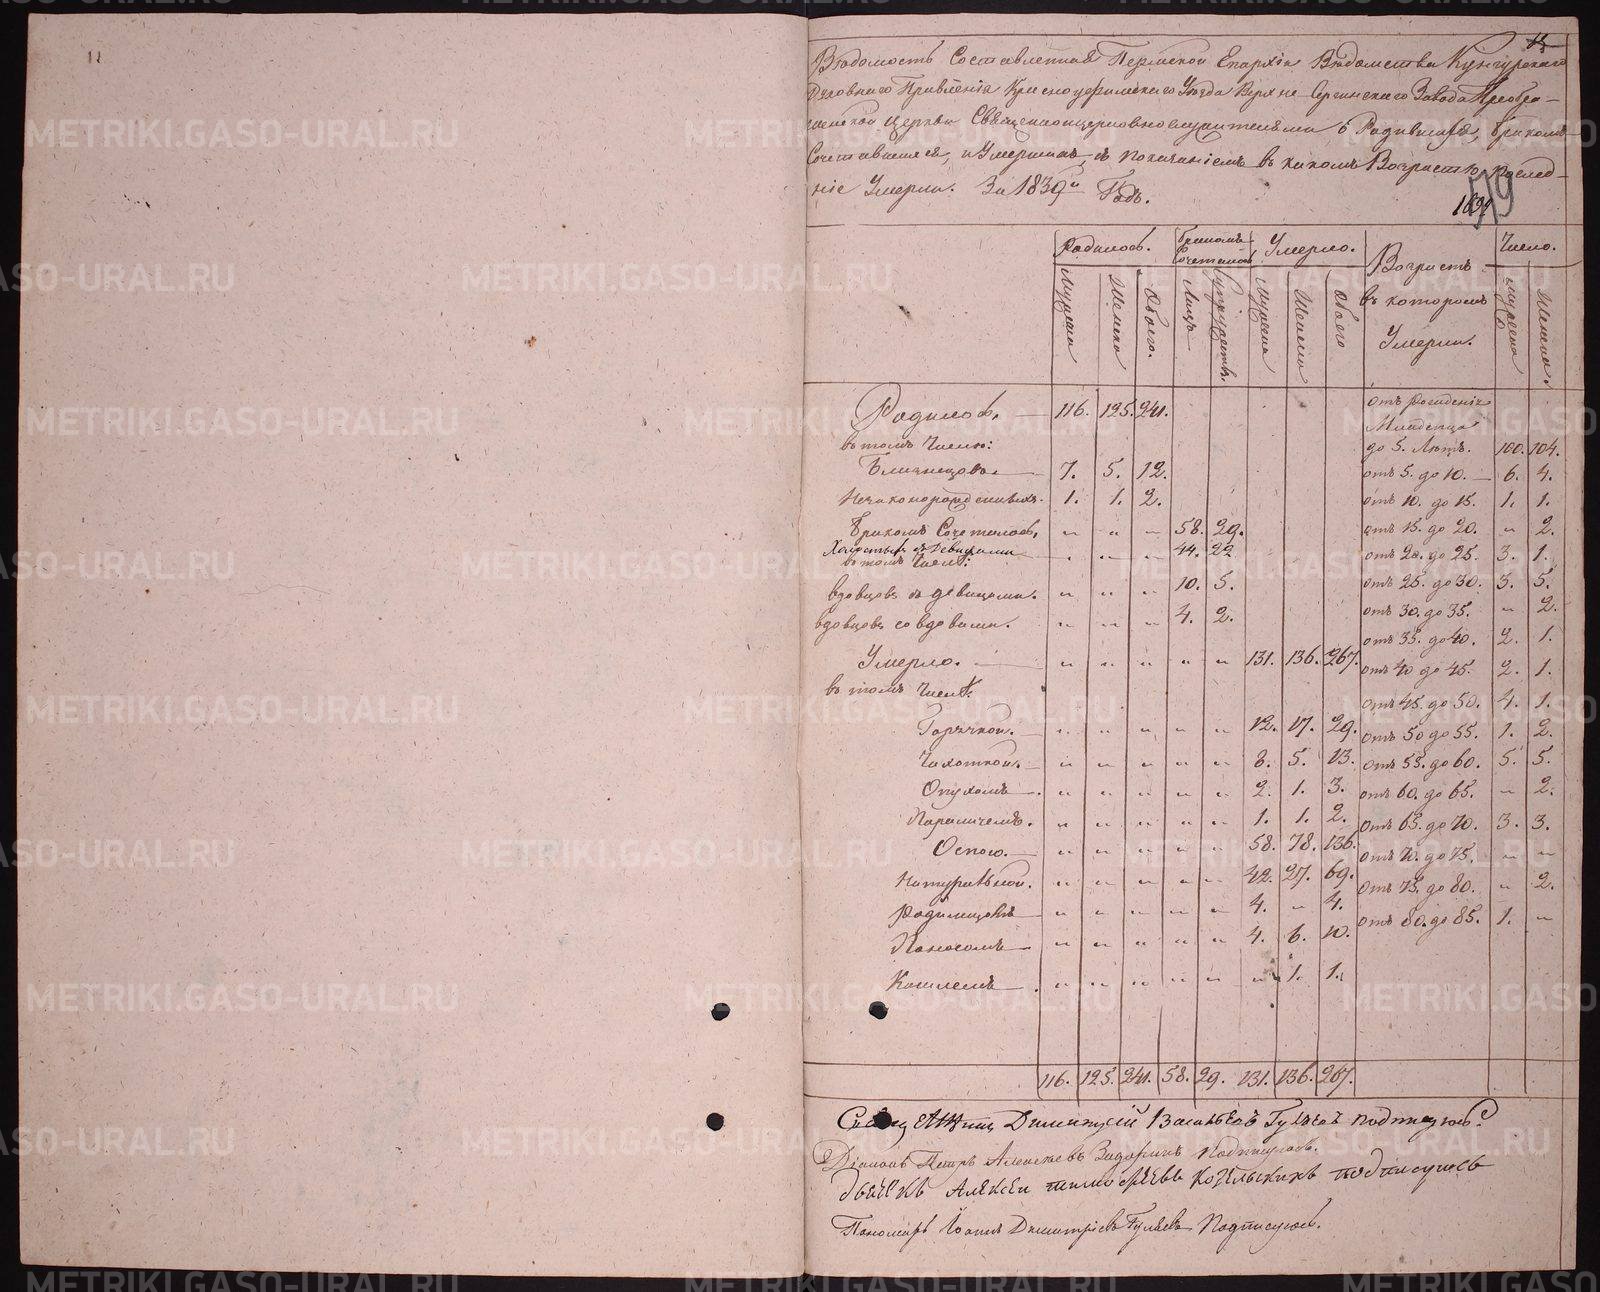 11
Вѣдомость Составленная Пермской Епархіи Вѣдомства Кунгурскаго
Духовнаго Правленія Красноуфимскаго Уѣзда Верхне-Сергинскаго Завода Преобра-
женской церкви Священноцерковнослужителями о Родившихся, бракомъ
Сочетавшихся, и Умершихъ, съ показаніемъ въ какомъ Возрастѣ послед-
ніе Умерли. За 1839й Годъ.
179
Родилось. Бракомъ Сочеталось Умерло. Возрастъ въ которомъ Умерли. Число.
Мужеска Женска Обоего. Лицъ Супружествъ. Мужеска Женска Обоего Мужеска Женска.
Родилось. 116. 125. 241.
въ томъ Числѣ:
Близнецовъ. 7. 5. 12.
Незаконорожденныхъ. 1. 1. 2.
Бракомъ Сочеталось. „ „ „ 58. 29.
Холостыхъ съ Девицами „ „ 44. 22
въ томъ Числѣ:
вдовцовъ съ девицами. „ „ „ 10. 5.
вдовцовъ со вдовами. „ „ „ 4. 2.
Умерло. „ „ „ „ „ 131. 136. 267.
въ томъ Числѣ:
Горячкой. „ „ „ „ „ 12. 17. 29.
Чахоткой. „ „ „ „ „ 8. 5. 13.
Опухомъ „ „ „ „ „ 2. 1. 3.
Параличемъ. „ „ „ „ „ 1. 1. 2.
Оспою. „ „ „ „ „ 58. 78. 136.
Натуральной. „ „ „ „ „ 42. 27. 69.
Родимцомъ „ „ „ „ „ 4. „ 4.
Поносомъ „ „ „ „ „ 4. 6. 10.
Кашлемъ „ „ „ „ „ „ 1. 1.
отъ рожденія
Младенца
до 5. Лѣтъ. 100. 104.
отъ 5. до 10. 6. 4.
отъ 10. до 15. 1. 1.
отъ 15. до 20. „ 2.
отъ 20. до 25. 3. 1.
отъ 25. до 30. 3. 5.
отъ 30. до 35. „ 2.
отъ 35. до 40. 2. 1.
отъ 40 до 45. 2. 1.
отъ 45. до 50. 4. 1.
отъ 50 до 55. 1. 2.
отъ 55. до 60. 5. 5.
отъ 60. до 65. „ 2.
отъ 65. до 70. 3. 3.
отъ 70. до 75. „ „
отъ 75. до 80. „ 2.
отъ 80. до 85. 1. „
116. 125. 241. 58. 29. 131. 136. 267.
Димитрій Васильевъ Гуляевъ подписуюсь
Діаконъ Петръ Алексѣевъ Подписуюсь.
дьячекъ Алексѣй Тимофѣевъ Козельскихъ подписуюсь
Пономарь Іоаннъ Димитріевъ Гуляевъ Подписуюсь.
METRIKI.GASO-URAL.RU